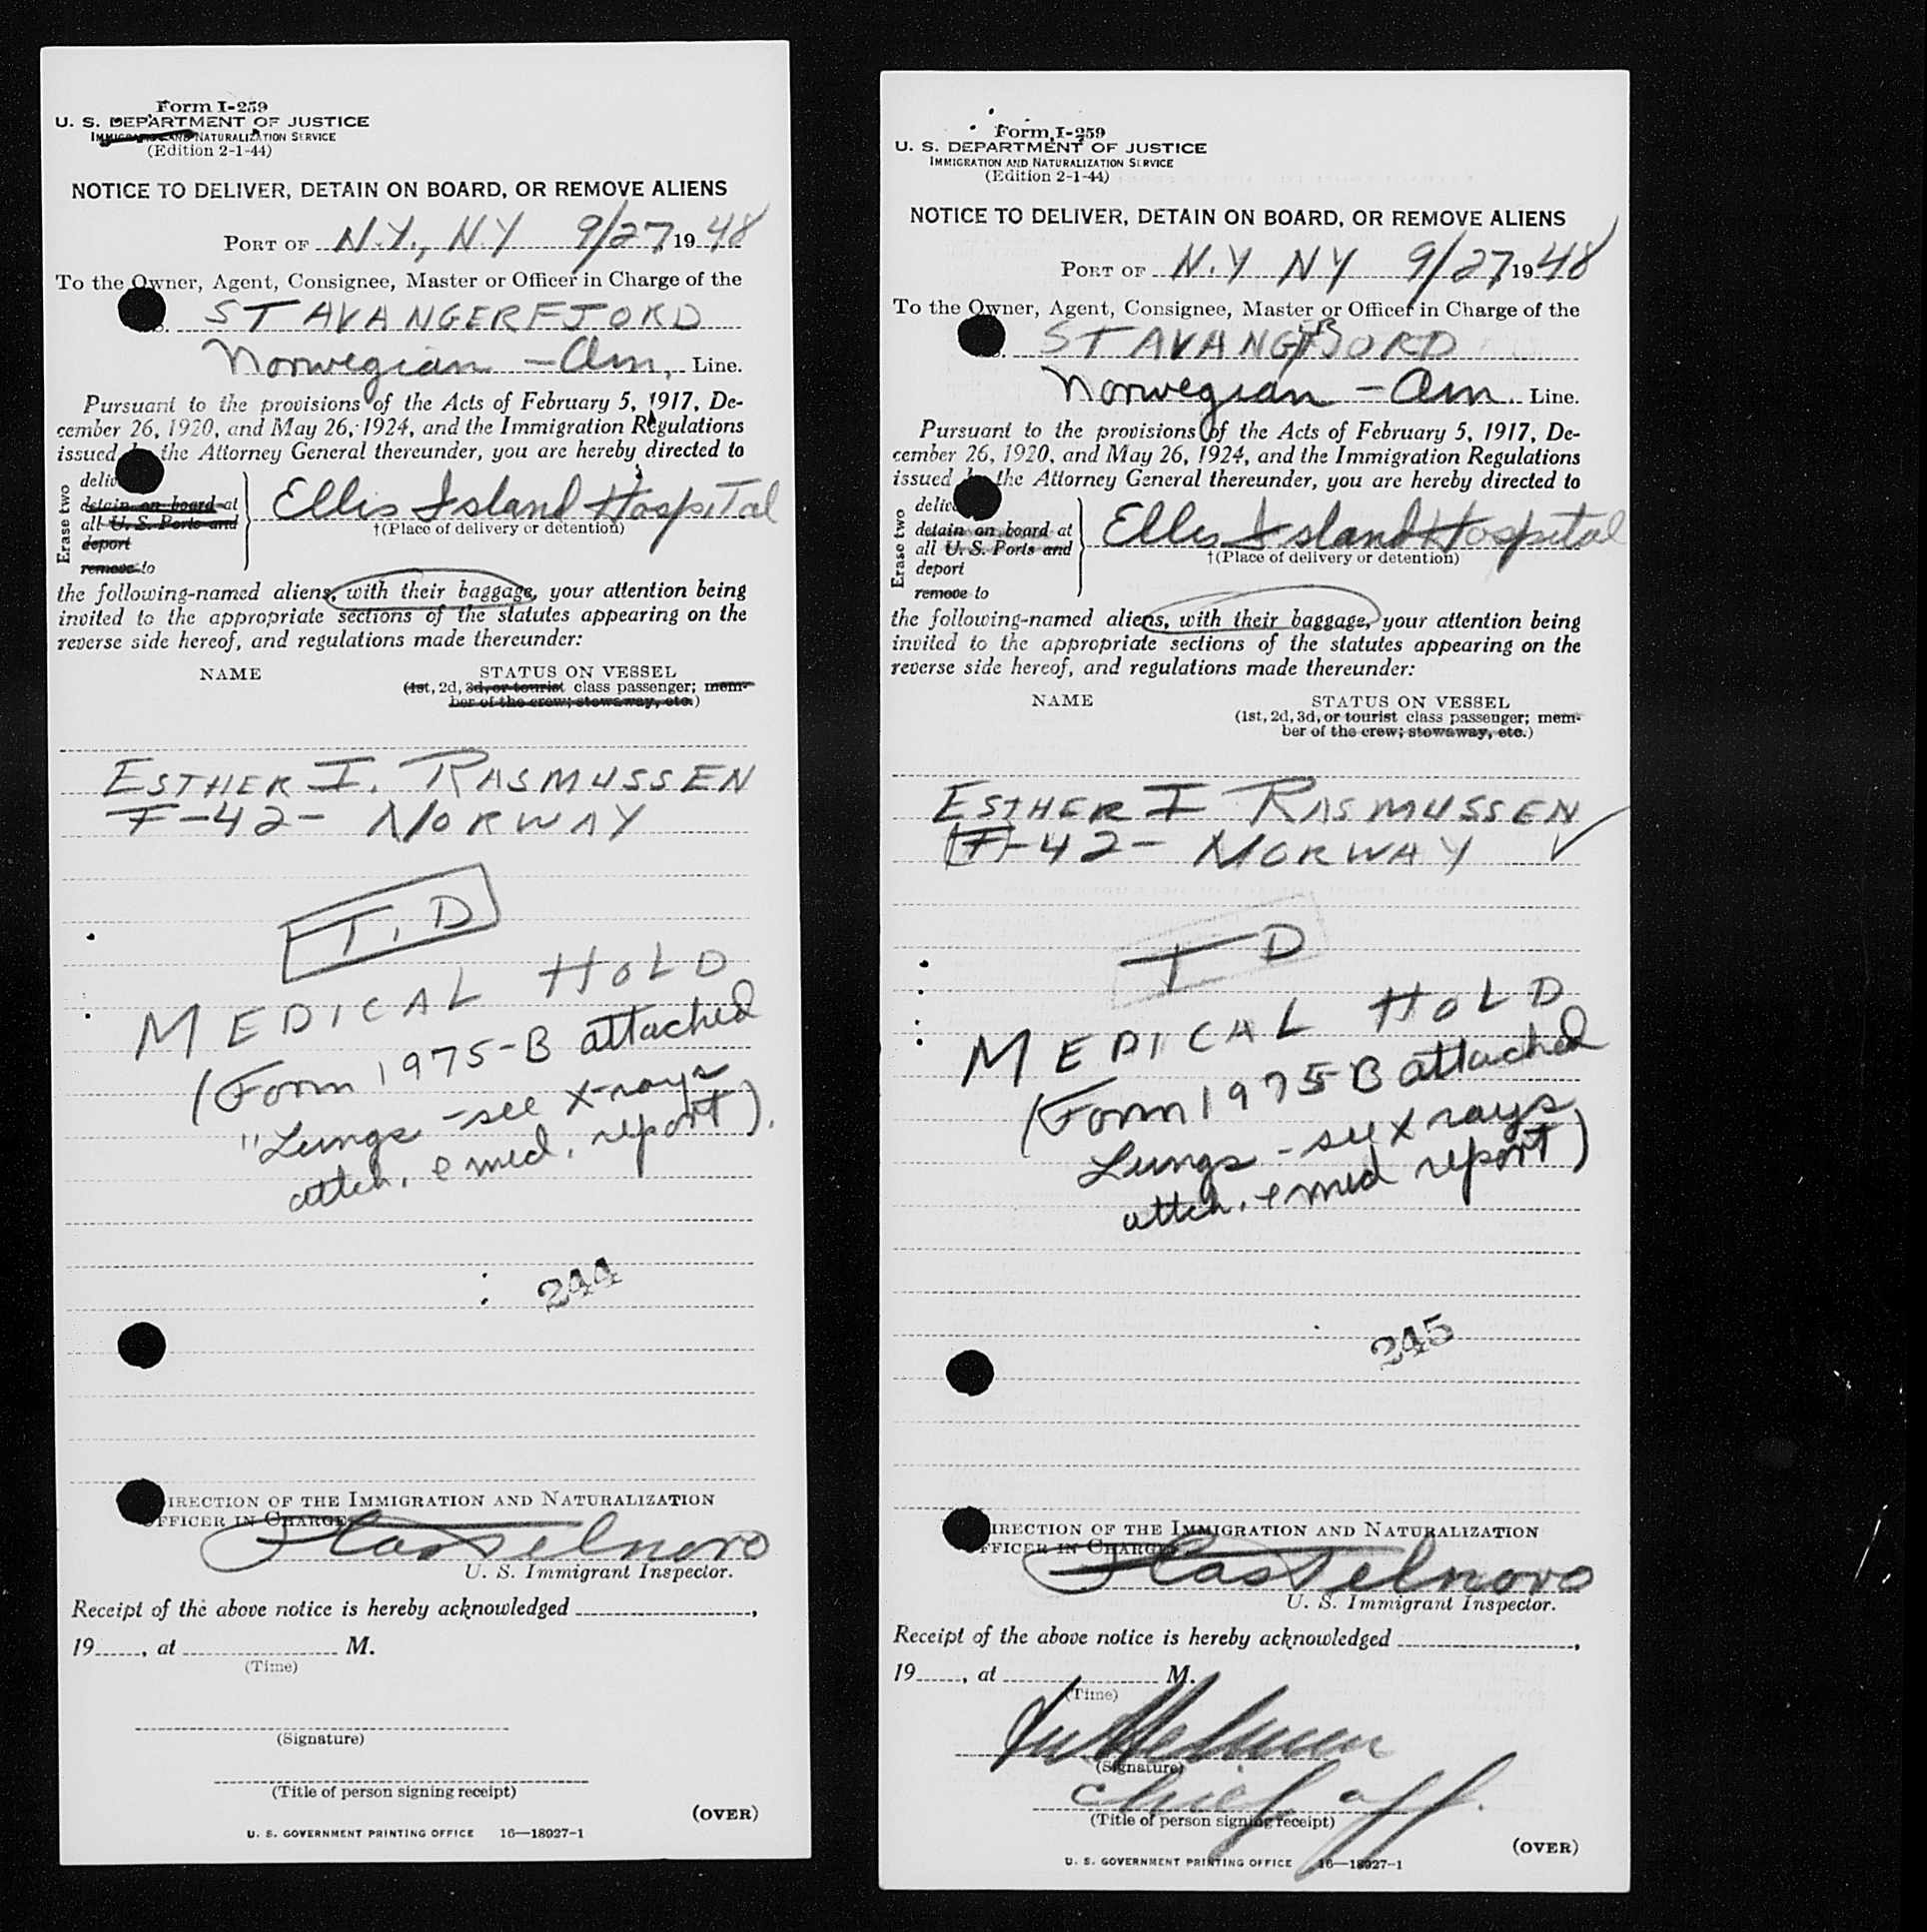 Form I-259
U. S. DEPARTMENT OF JUSTICE
IMMIGRATION AND NATURALIZATION SERVICE
(Edition 2-1-44)
NOTICE TO DELIVER, DETAIN ON BOARD, OR REMOVE ALIENS
PORT OF N.Y., N.Y 9/27 19 48
To the Owner, Agent, Consignee, Master or Officer in Charge of the
STAVANGERFJORD
Norwegian - Am. Line.
Pursuant to the provisions of the Acts of February 5, 1917, De-
cember 26, 1920, and May 26, 1924, and the Immigration Regulations
issued by the Attorney General thereunder, you are hereby directed to
Erase two
detain on board at
all U. S. Ports and
deport
remove to
Ellis Island Hospital
†(Place of delivery or detention)
the following-named aliens, with their baggage, your attention being
invited to the appropriate sections of the statutes appearing on the
reverse side hereof, and regulations made thereunder:
NAME STATUS ON VESSEL
(1st, 2d, 3d, or tourist class passenger; mem-
ber of the crew; stowaway, etc.)
ESTHER I. RASMUSSEN
F-42- NORWAY
T.D
MEDICAL HOLD
(Form 1975-B attached
"Lungs - see X-rays
attch. & med. report).
244
DIRECTION OF THE IMMIGRATION AND NATURALIZATION
OFFICER IN CHARGE
Castelnovo
U. S. Immigrant Inspector.
Receipt of the above notice is hereby acknowledged ,
19 , at M.
(Time)
(Signature)
(Title of person signing receipt)
(OVER)
U. S. GOVERNMENT PRINTING OFFICE 16—18927-1
Form I-259
U. S. DEPARTMENT OF JUSTICE
IMMIGRATION AND NATURALIZATION SERVICE
(Edition 2-1-44)
NOTICE TO DELIVER, DETAIN ON BOARD, OR REMOVE ALIENS
PORT OF N.Y NY 9/27 19 48
To the Owner, Agent, Consignee, Master or Officer in Charge of the
STAVANGERFJORD
Norwegian - Am. Line.
Pursuant to the provisions of the Acts of February 5, 1917, De-
cember 26, 1920, and May 26, 1924, and the Immigration Regulations
issued by the Attorney General thereunder, you are hereby directed to
Erase two
detain on board at
all U. S. Ports and
deport
remove to
Ellis Island Hospital
†(Place of delivery or detention)
the following-named aliens, with their baggage, your attention being
invited to the appropriate sections of the statutes appearing on the
reverse side hereof, and regulations made thereunder:
NAME STATUS ON VESSEL
(1st, 2d, 3d, or tourist class passenger; mem-
ber of the crew; stowaway, etc.)
ESTHER I RASMUSSEN
F-42- NORWAY ✓
T D
MEDICAL HOLD
(Form 1975-B attached
Lungs - see X rays
attch. & med report)
245
DIRECTION OF THE IMMIGRATION AND NATURALIZATION
OFFICER IN CHARGE
Castelnovo
U. S. Immigrant Inspector.
Receipt of the above notice is hereby acknowledged ,
19 , at M.
(Time)
(Signature)
Chief off.
(Title of person signing receipt)
(OVER)
U. S. GOVERNMENT PRINTING OFFICE 16—18927-1